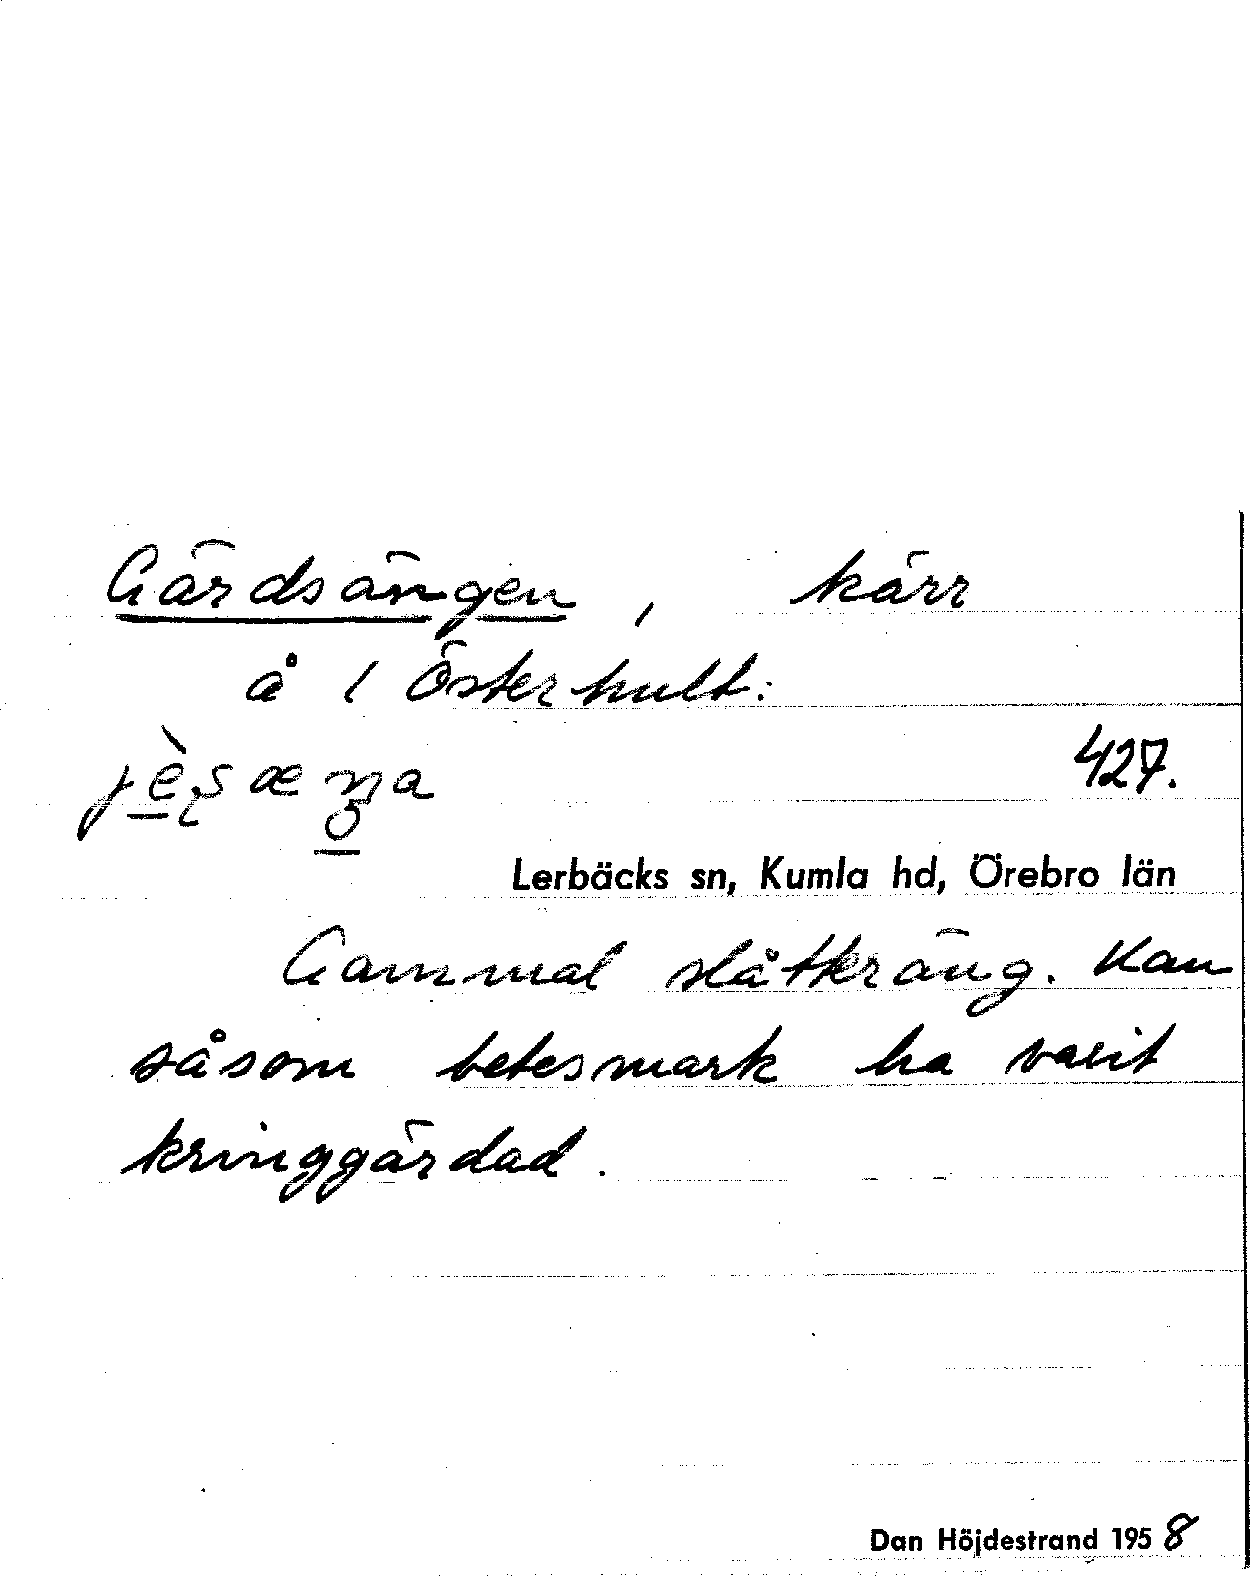 Gärdsängen, kärr
å 1 Österhult:
427.
Lerbäcks sn, Kumla hd, Örebro län
Gammal slåtteräng. Kan
såsom betesmark ha varit
kringgärdad.
Dan Höjdestrand 1958